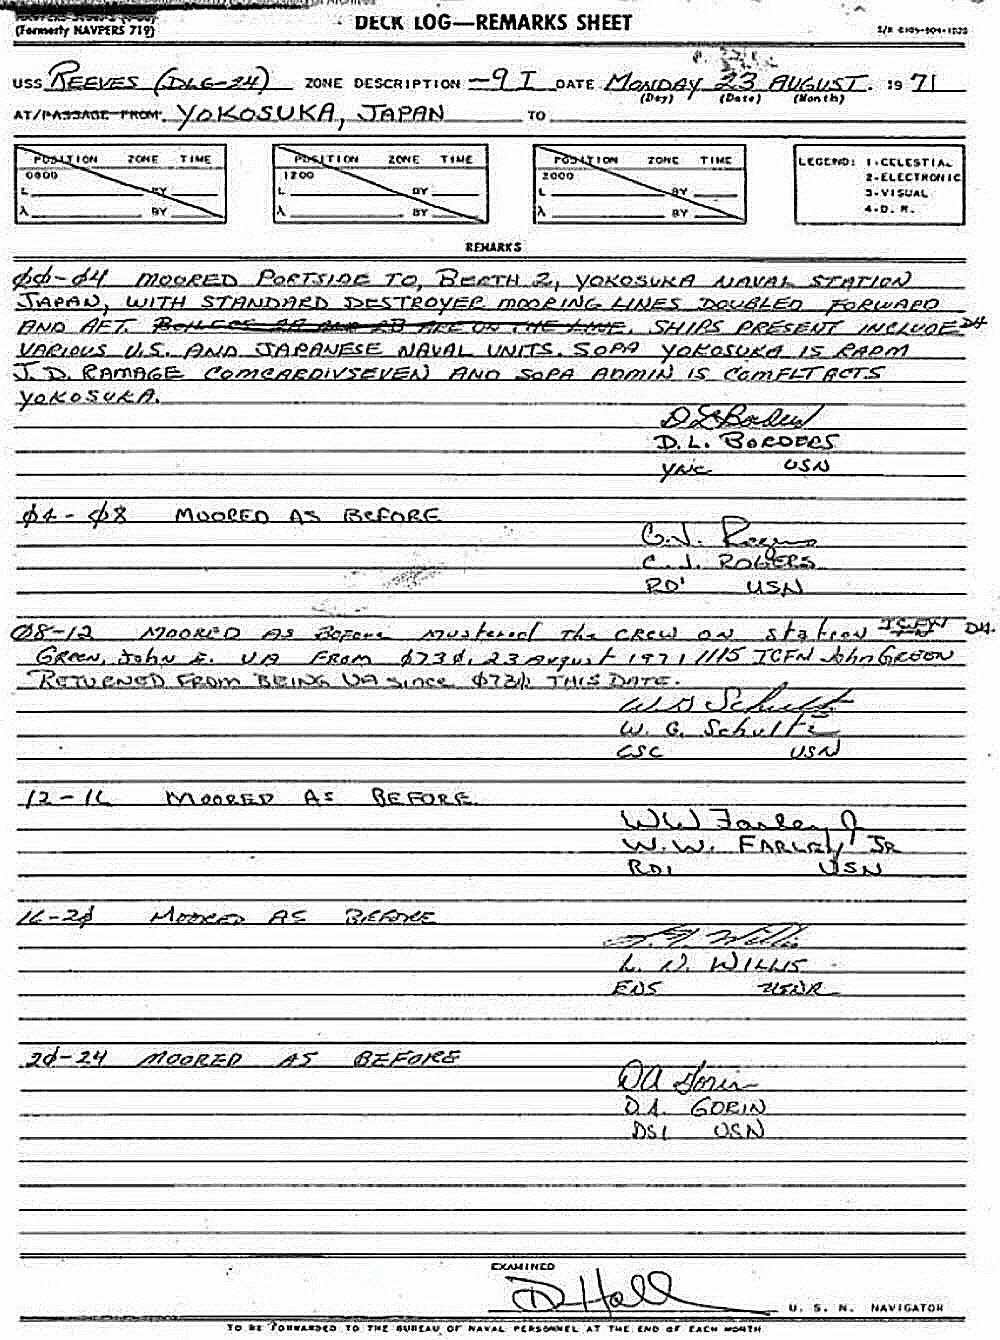 DECK LOG—REMARKS SHEET
(Formerly NAVPERS 719)
USS REEVES (DLG-24) ZONE DESCRIPTION -9 I DATE MONDAY 23 AUGUST 1971
(Day) (Date) (Month)
AT/PASSAGE FROM YOKOSUKA, JAPAN TO
POSITION ZONE TIME POSITION ZONE TIME POSITION ZONE TIME LEGEND: 1-CELESTIAL
0800 1200 2000 2-ELECTRONIC
L BY L BY L BY 3-VISUAL
λ BY λ BY λ BY 4-D. R.
REMARKS
ØØ-Ø4 MOORED PORTSIDE TO, BERTH 2, YOKOSUKA NAVAL STATION
JAPAN, WITH STANDARD DESTROYER MOORING LINES DOUBLED FORWARD
AND AFT. BOILERS 2A AND 2B ARE ON THE LINE. SHIPS PRESENT INCLUDE DH
VARIOUS U.S. AND JAPANESE NAVAL UNITS. SOPA YOKOSUKA IS RADM
J. D. RAMAGE COMCARDIVSEVEN AND SOPA ADMIN IS COMFLTACTS
YOKOSUKA.
D L Borders
D. L. BORDERS
YNC USN
Ø4-Ø8 MOORED AS BEFORE
C. J. Rogers
C. J. ROGERS
RD1 USN
Ø8-12 MOORED AS BEFORE Mustered The CREW ON station ICFN DH
GREEN, John E. UA FROM Ø73Ø, 23 August 1971 1115 ICFN John GREEN
RETURNED FROM BEING UA since Ø73Ø THIS DATE.
W G Schultz
W. G. Schultz
CSC USN
12-16 MOORED AS BEFORE
WW Farley Jr
W. W. FARLEY JR
RD1 USN
16-2Ø MOORED AS BEFORE
L. N. Willis
L. N. WILLIS
ENS USNR
2Ø-24 MOORED AS BEFORE
DA Gorin
D.A. GORIN
DS1 USN
EXAMINED
D Hall U. S. N. NAVIGATOR
TO BE FORWARDED TO THE BUREAU OF NAVAL PERSONNEL AT THE END OF EACH MONTH